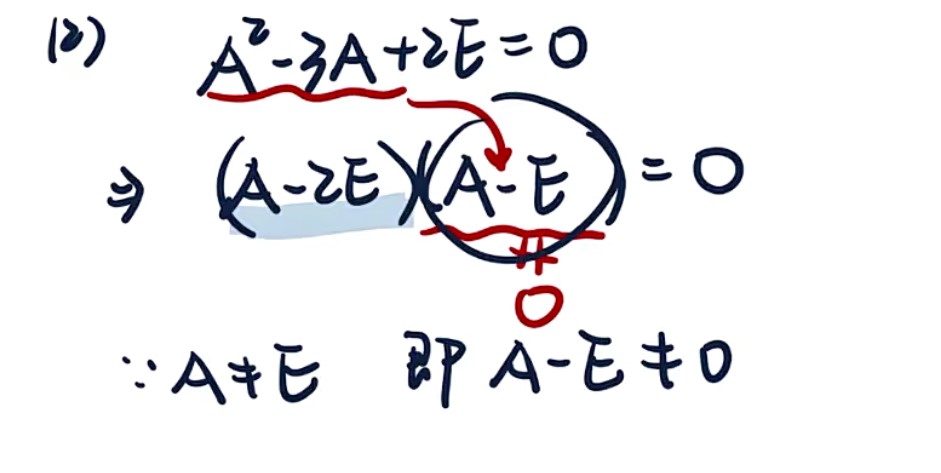 (2) A²-3A+2E=0
⇒ (A-2E)(A-E)=0
≠
0
∵A≠E 即 A-E≠0